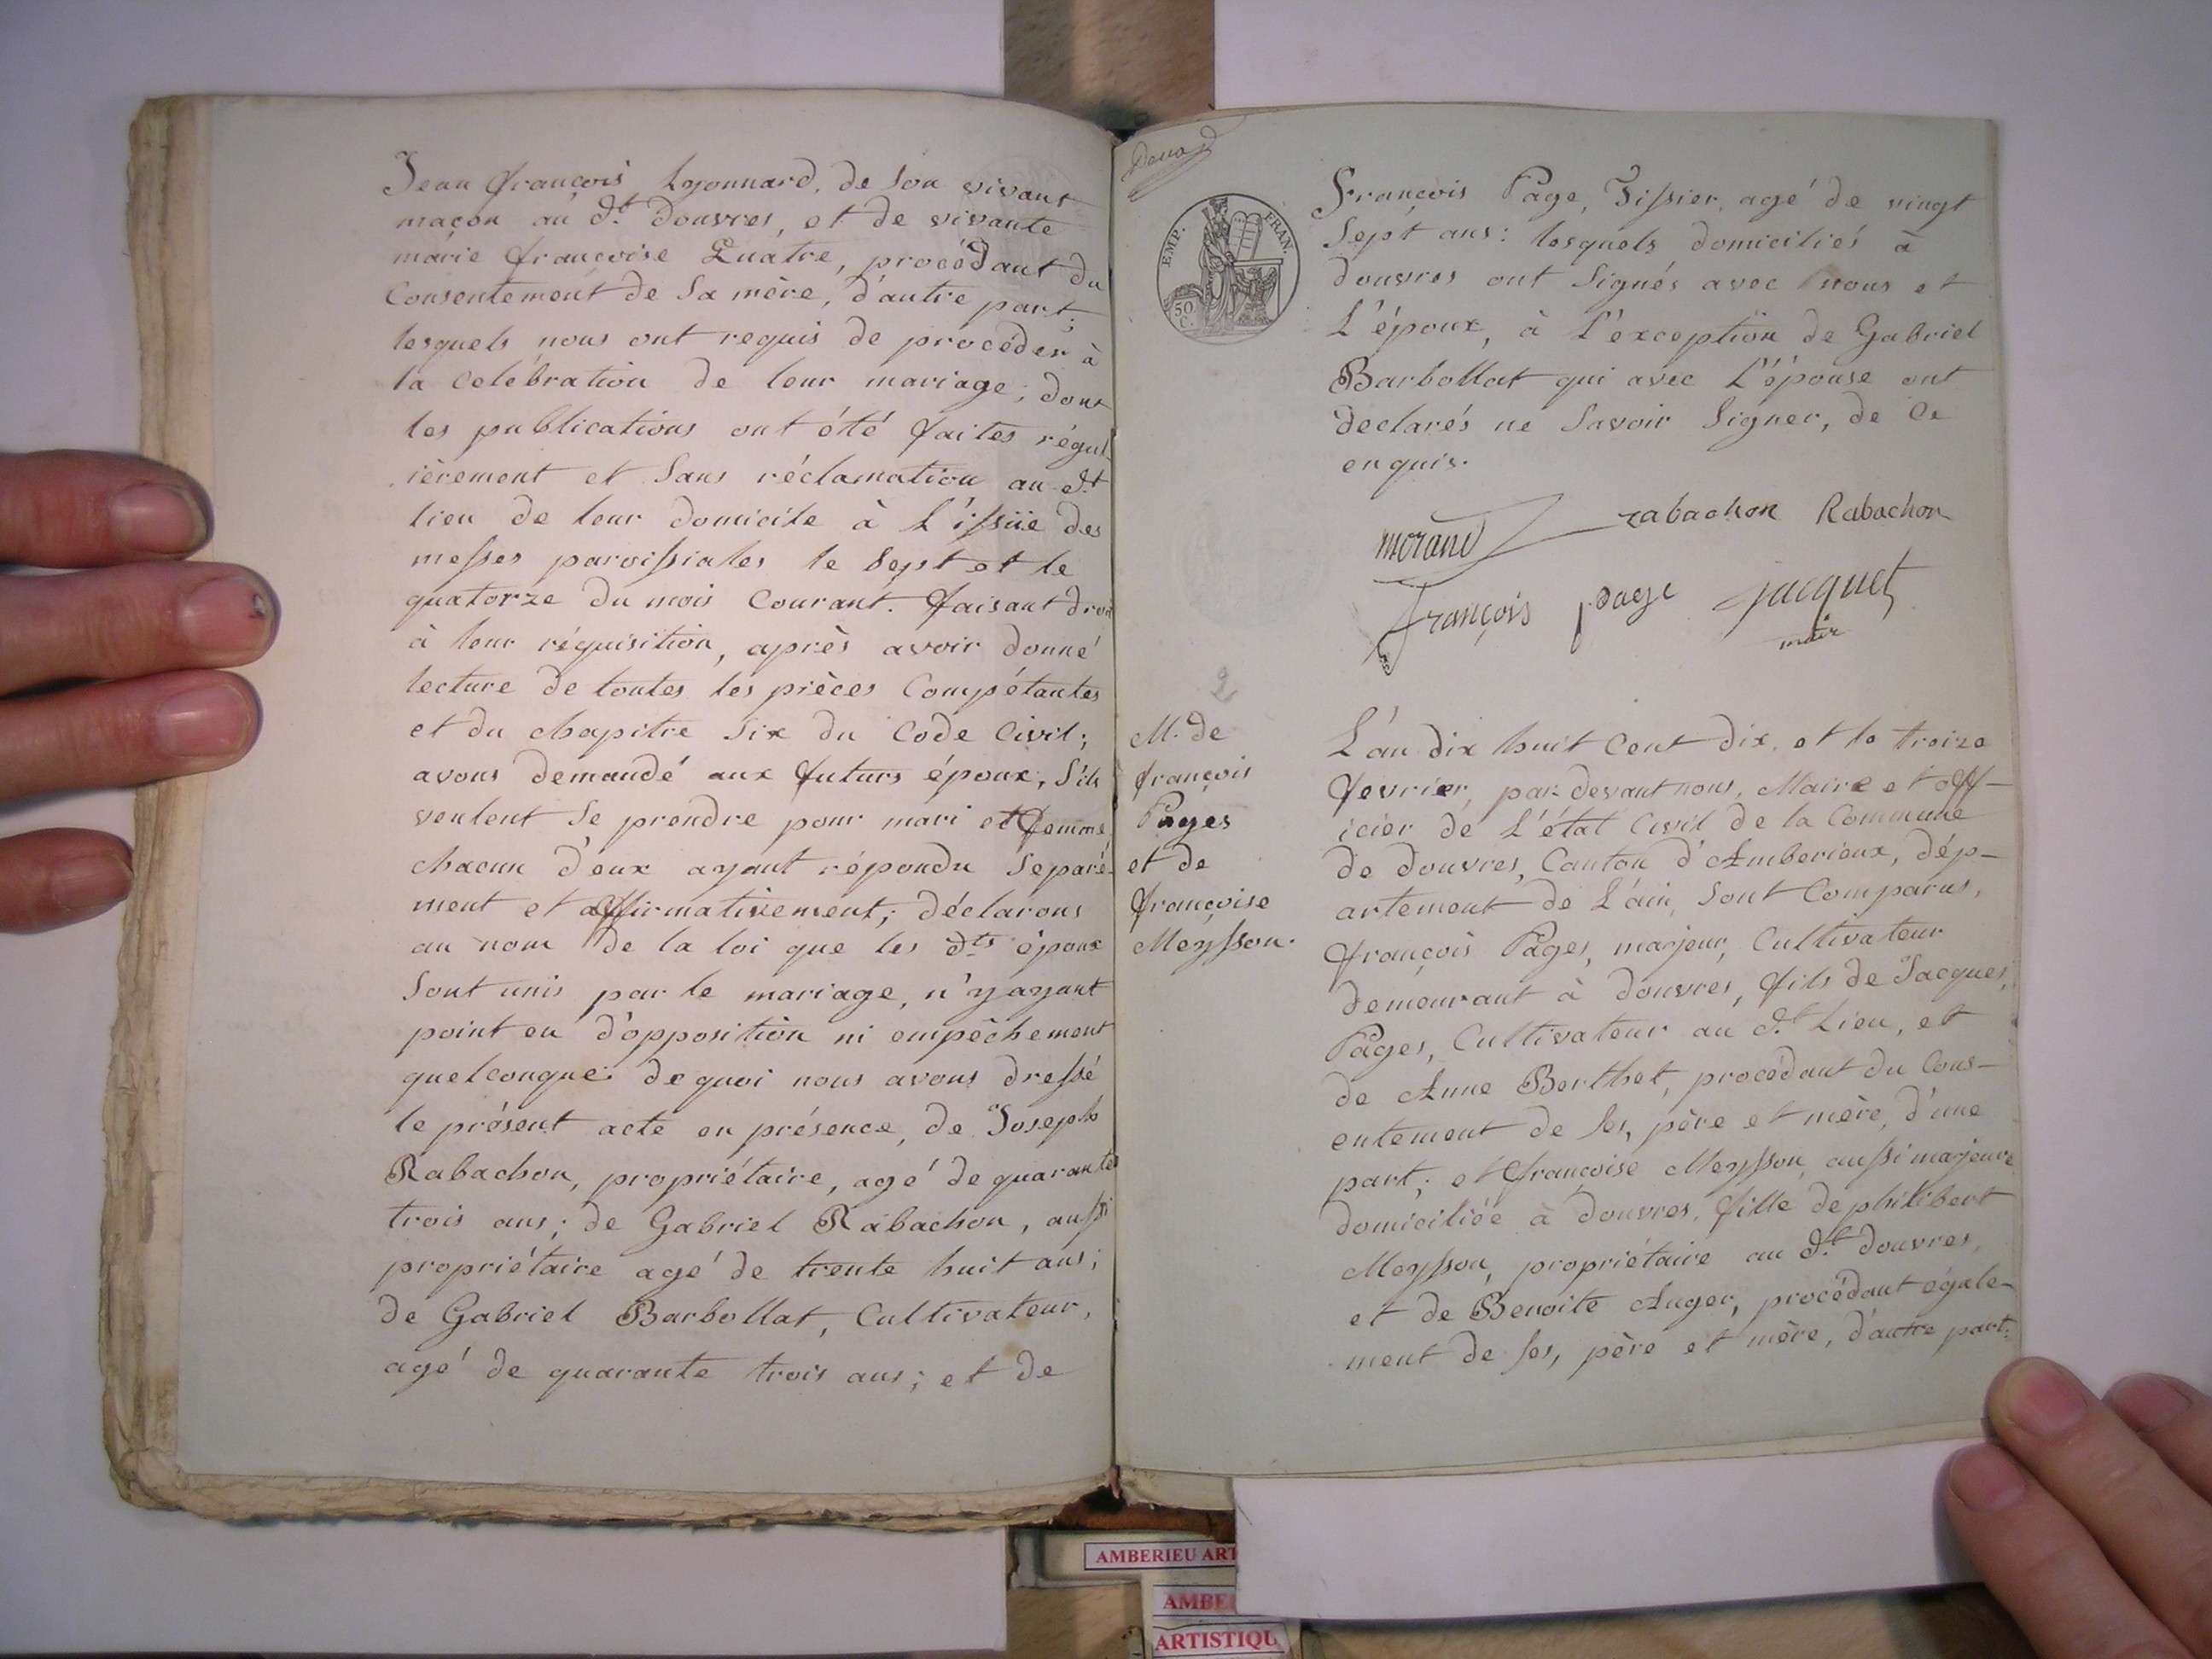 Jean françois Lyonnard, de son vivant
maçon au d.t douvres, et de vivante
marie françoise Quatre, procédant du
Consentement de Sa mère, d'autre part;
lesquels nous ont requis de procéder à
la Celébration de leur mariage; dont
les publications ont été faites régul
ièrement et Sans réclamation au d.t
lieu de leur domicile à L'issüe des
messes paroissiales le Sept et le
quatorze du mois Courant. faisant droit
à leur réquisition, après avoir donné
lecture de toutes les pièces Compétantes
et du chapitre Six du Code Civil;
avons demandé aux futurs époux, S'ils
veulent Se prendre pour mari et femme
chacun d'eux ayant répondu Séparé-
ment et affirmativement; déclarons
au nom de la loi que les d.ts époux
Sont unis par le mariage, n'y ayant
point eu d'opposition ni empêchement
quelconque: de quoi nous avons dressé
le présent acte en présence, de Joseph
Rabachon, propriétaire, agé de quarante
trois ans; de Gabriel Rabachon, aussi
propriétaire agé de trente huit ans;
de Gabriel Barbollat, Cultivateur,
agé de quarante trois ans; et de
EMP. FRAN.
50
C.
François Page, Tissier, agé de vingt
Sept ans: lesquels domiciliés à
douvres ont Signés avec nous et
L'époux, à l'exception de Gabriel
Barbollat qui avec L'épouse ont
déclarés ne Savoir Signer, de Ce
enquis.
morand rabachon Rabachon
françois page jacquet
mair
2
M. de
françois
Pages
et de
françoise
Meysson.
L'an dix huit Cent dix, et le treize
fevrier, par devant nous, Maire et off-
icier de L'état Civil de la Commune
de douvres, Canton d'Amberieux, dép-
artement de L'ain, Sont Comparus,
françois Pages, majeur, Cultivateur
demeurant à douvres, fils de Jacques,
Pages, Cultivateur au d.t Lieu, et
de Anne Berthet, procédant du Cons-
entement de Ses, père et mère, d'une
part; et françoise Meysson, aussi majeure
domiciliée à douvres, fille de philibert
Meysson, propriétaire au d.t douvres,
et de Benoite Auger, procédant égale-
ment de Ses, père et mère, d'autre part:
AMBERIEU ART
AMBE
ARTISTIQU